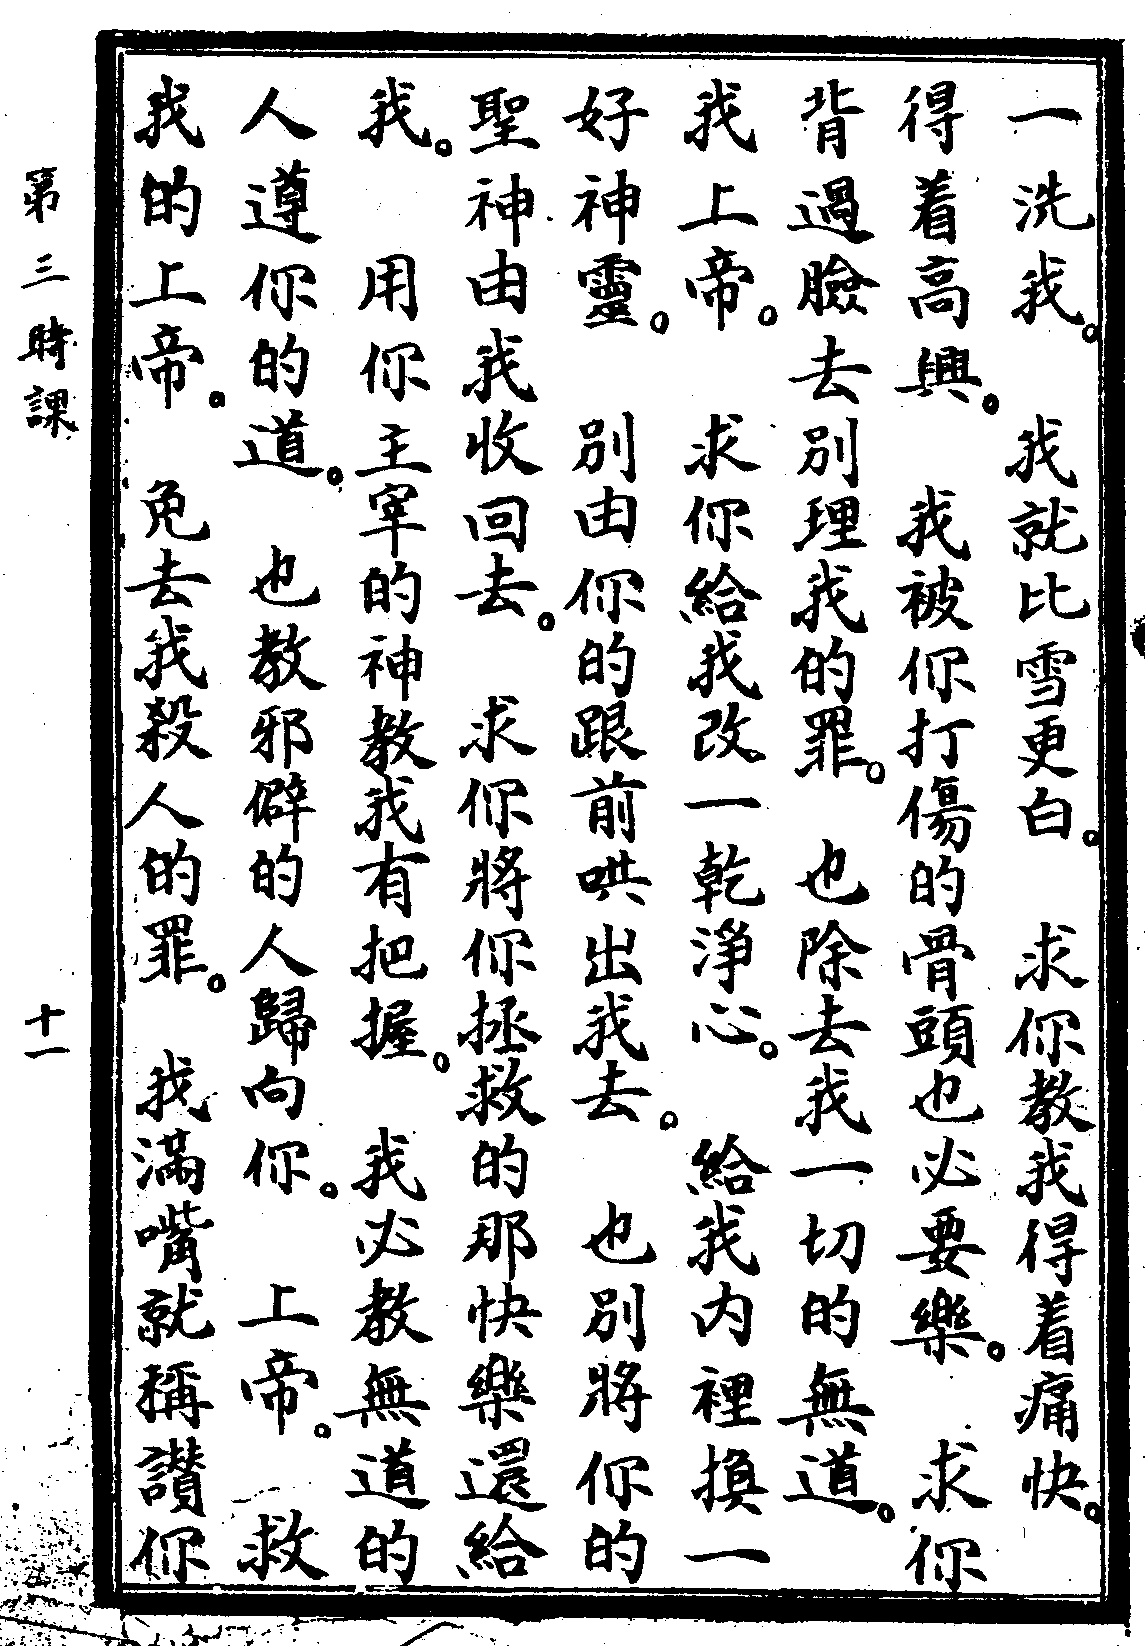 一洗我。 我就比雪更白。 求你教我得着痛快。
得着高興。 我被你打傷的骨頭也必要樂。 求你
背過臉去別理我的罪。 也除去我一切的無道。
我上帝。 求你給我改一乾淨心。 給我內裡換一
好神靈。 別由你的跟前哄出我去。 也別將你的
聖神由我收回去。 求你將你拯救的那快樂還給
我。 用你主宰的神教我有把握。 我必教無道的
人遵你的道。 也教邪僻的人歸向你。 上帝。 救
我的上帝。 免去我殺人的罪。 我滿嘴就稱讚你
第三時課 十一